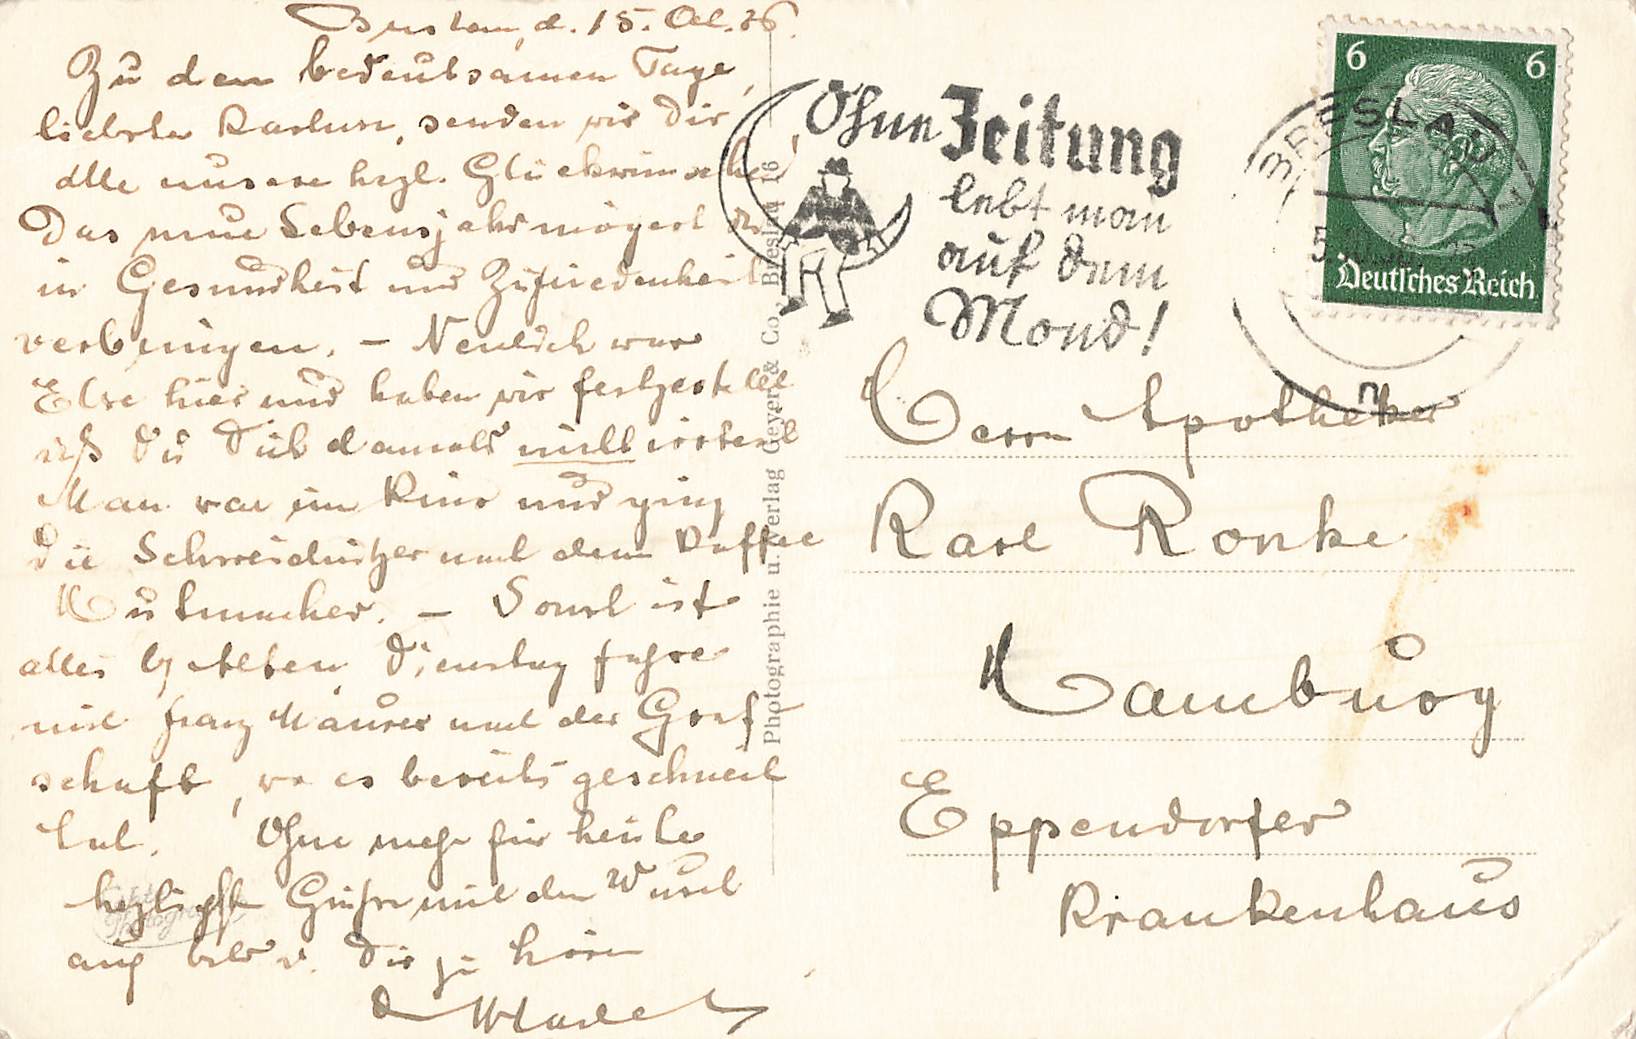 Breslau, d. 15. Okt. 36.
Zu dem bedeutsamen Tage,
liebster, senden wir Dir
alle unsere hrzl. Glückwünsche!
Das neue Lebensjahr mögest Du
in Gesundheit und Zufriedenheit
verbringen. – Neulich war
Else hier und haben wir festgestellt
daß Du Dich damals nicht
Man war im Kino und ging
die Schweidnitzer nach dem Kaffee
Hutmacher. – Sonst ist
alles b/ Alten. Dienstag fahre
mit Franz nach der Graf
schaft, wo es bereits geschneit
hat. Ohne mehr für heute
herzlichste Grüße mit dem Wunsch
auch bald v. Dir zu hören
Ohne Zeitung
lebt man
auf dem
Mond!
BRESLAU
6 6
Deutsches Reich
Herrn Apotheker
Karl Ronke
Hamburg
Eppendorfer
Krankenhaus
Photographie u. Verlag Geyer & Co., Breslau 16